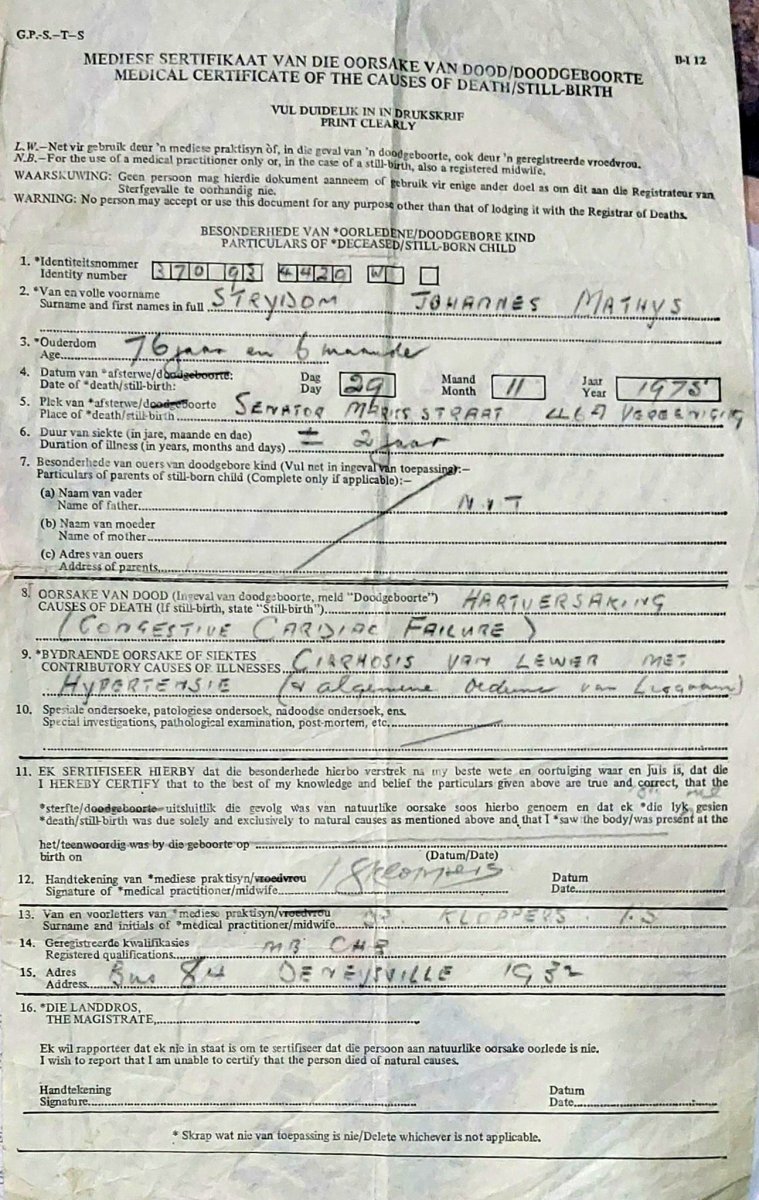 G.P.-S.-T-S
B-I 12
MEDIESE SERTIFIKAAT VAN DIE OORSAKE VAN DOOD/DOODGEBOORTE
MEDICAL CERTIFICATE OF THE CAUSES OF DEATH/STILL-BIRTH
VUL DUIDELIK IN IN DRUKSKRIF
PRINT CLEARLY
L.W.-Net vir gebruik deur 'n mediese praktisyn òf, in die geval van 'n doodgeboorte, ook deur 'n geregistreerde vroedvrou.
N.B.-For the use of a medical practitioner only or, in the case of a still-birth, also a registered midwife.
WAARSKUWING: Geen persoon mag hierdie dokument aanneem of gebruik vir enige ander doel as om dit aan die Registrateur van
Sterfgevalle te oorhandig nie.
WARNING: No person may accept or use this document for any purpose other than that of lodging it with the Registrar of Deaths.
BESONDERHEDE VAN *OORLEDENE/DOODGEBORE KIND
PARTICULARS OF *DECEASED/STILL-BORN CHILD
1. *Identiteitsnommer
Identity number 370 93 4420 W
2. *Van en volle voorname
Surname and first names in full STRYDOM JOHANNES MATHYS
3. *Ouderdom
Age 76 jaar en 6 maande
4. Datum van *afsterwe/doodgeboorte: Dag Maand Jaar
Date of *death/still-birth: Day 29 Month 11 Year 1975
5. Plek van *afsterwe/doodgeboorte
Place of *death/still-birth SENATOR MARKS STRAAT VEREENIGING
6. Duur van siekte (in jare, maande en dae)
Duration of illness (in years, months and days) ± 2 jaar
7. Besonderhede van ouers van doodgebore kind (Vul net in ingeval van toepassing):-
Particulars of parents of still-born child (Complete only if applicable):-
(a) Naam van vader
Name of father N.v.T
(b) Naam van moeder
Name of mother
(c) Adres van ouers
Address of parents
8. OORSAKE VAN DOOD (Ingeval van doodgeboorte, meld "Doodgeboorte")
CAUSES OF DEATH (If still-birth, state "Still-birth") HARTVERSAKING
(CONGESTIVE CARDIAC FAILURE)
9. *BYDRAENDE OORSAKE OF SIEKTES
CONTRIBUTORY CAUSES OF ILLNESSES CIRRHOSIS VAN LEWER MET
HYPERTENSIE (& algemene oedeme van Liggaam)
10. Spesiale ondersoeke, patologiese ondersoek, nadoodse ondersoek, ens.
Special investigations, pathological examination, post-mortem, etc.
11. EK SERTIFISEER HIERBY dat die besonderhede hierbo verstrek na my beste wete en oortuiging waar en juis is, dat die
I HEREBY CERTIFY that to the best of my knowledge and belief the particulars given above are true and correct, that the
*sterfte/doodgeboorte uitsluitlik die gevolg was van natuurlike oorsake soos hierbo genoem en dat ek *die lyk gesien
*death/still-birth was due solely and exclusively to natural causes as mentioned above and that I *saw the body/was present at the
het/teenwoordig was by die geboorte op
birth on (Datum/Date)
12. Handtekening van *mediese praktisyn/vroedvrou Datum
Signature of *medical practitioner/midwife Kloppers Date
13. Van en voorletters van *mediese praktisyn/vroedvrou
Surname and initials of *medical practitioner/midwife DR. KLOPPERS I.S
14. Geregistreerde kwalifikasies
Registered qualifications MB CHB
15. Adres
Address Bus 84 DENEYSVILLE 1932
16. *DIE LANDDROS,
THE MAGISTRATE,
Ek wil rapporteer dat ek nie in staat is om te sertifiseer dat die persoon aan natuurlike oorsake oorlede is nie.
I wish to report that I am unable to certify that the person died of natural causes.
Handtekening Datum
Signature Date
* Skrap wat nie van toepassing is nie/Delete whichever is not applicable.